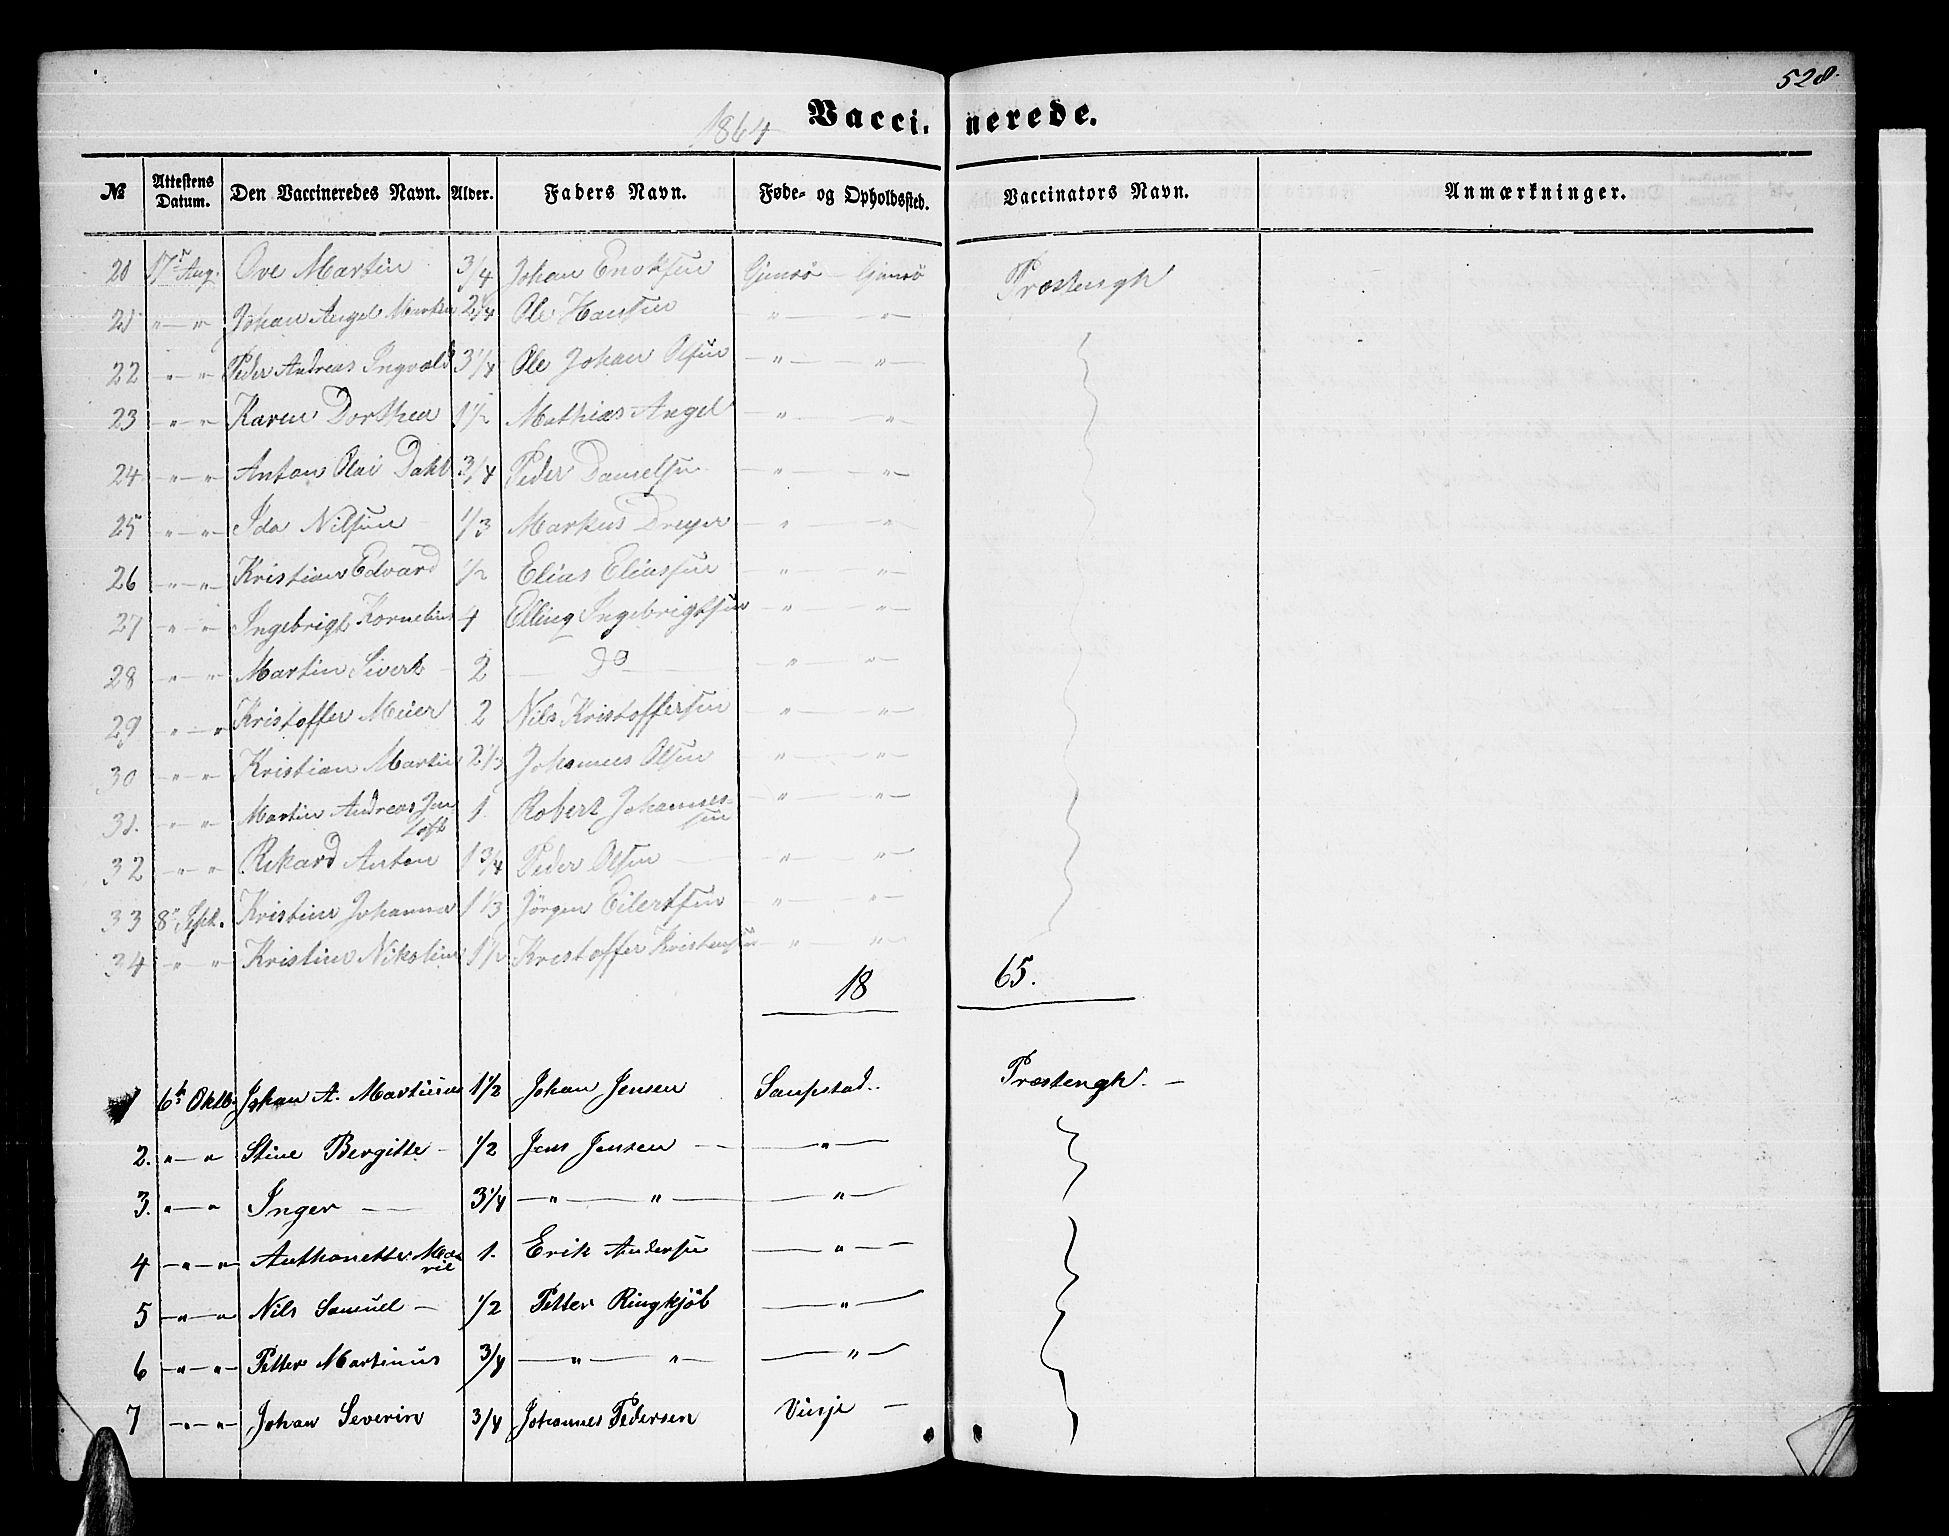 528.
1864 Vaccinerede.
№ Attestens Datum. Den Vaccineredes Navn. Alder. Faders Navn. Føde- og Opholdssted. Vaccinators Navn. Anmærkninger.
20 17de Aug. Ove Martin 3/4 Johan Enoksen Gimsö — Gimsö Præstengh
21 " — " Johan Angel 2 1/4 Ole Hansen " — "
22 " — " Peder Andreas Ingvald 3 1/4 Ole Johan Olsen " — "
23 " — " Karen Dorthea 1 1/2 Mathias Angel " — "
24 " — " Anton Olai Dahl 3/4 Peder Danielsen " — "
25 " — " Ida Nilsine 1/3 Markus Dreyer " — "
26 " — " Kristian Edvard 1/2 Elias Eliassen " — "
27 " — " Ingebrigt Kornelius 4 Elling Ingebrigtsen " — "
28 " — " Martin Sivert 2 — do — " — "
29 " — " Kristoffer Meier 2 Nils Kristoffersen " — "
30 " — " Kristian Martin 2 1/3 Johannes Olsen " — "
31. " — " Martin Andreas Jen 1. Robert Johannes-
Loft sen " — "
32 " — " Rikard Anton 1 3/4 Peder Olsen — " — "
33 8de Sept. Kristine Johanna 1 1/3 Jörgen Eilertsen " — "
34 " " Kristine Nikoline 1 1/2 Kristoffer Kristensen " — "
18 65.
1 6te Oktb. Johan A. Martinus 1 1/2 Johan Jensen Saupstad.. Præstengh. —
2. " — " Stine Bergitte — 1/2 Jens Jensen — — " —
3. " — " Inger — 3 1/4 — " — " — — " —
4 — " — " Anthonette Ma- 1. Erik Andersen — " —
rie
5 — " — " Nils Samuel — 1/2 Petter Ringkjöb — " —
6 — " — " Petter Martinus 3/4 — " — " — — " —
7 — " — " Johan Severin 3/4 Johannes Pedersen Vinje —